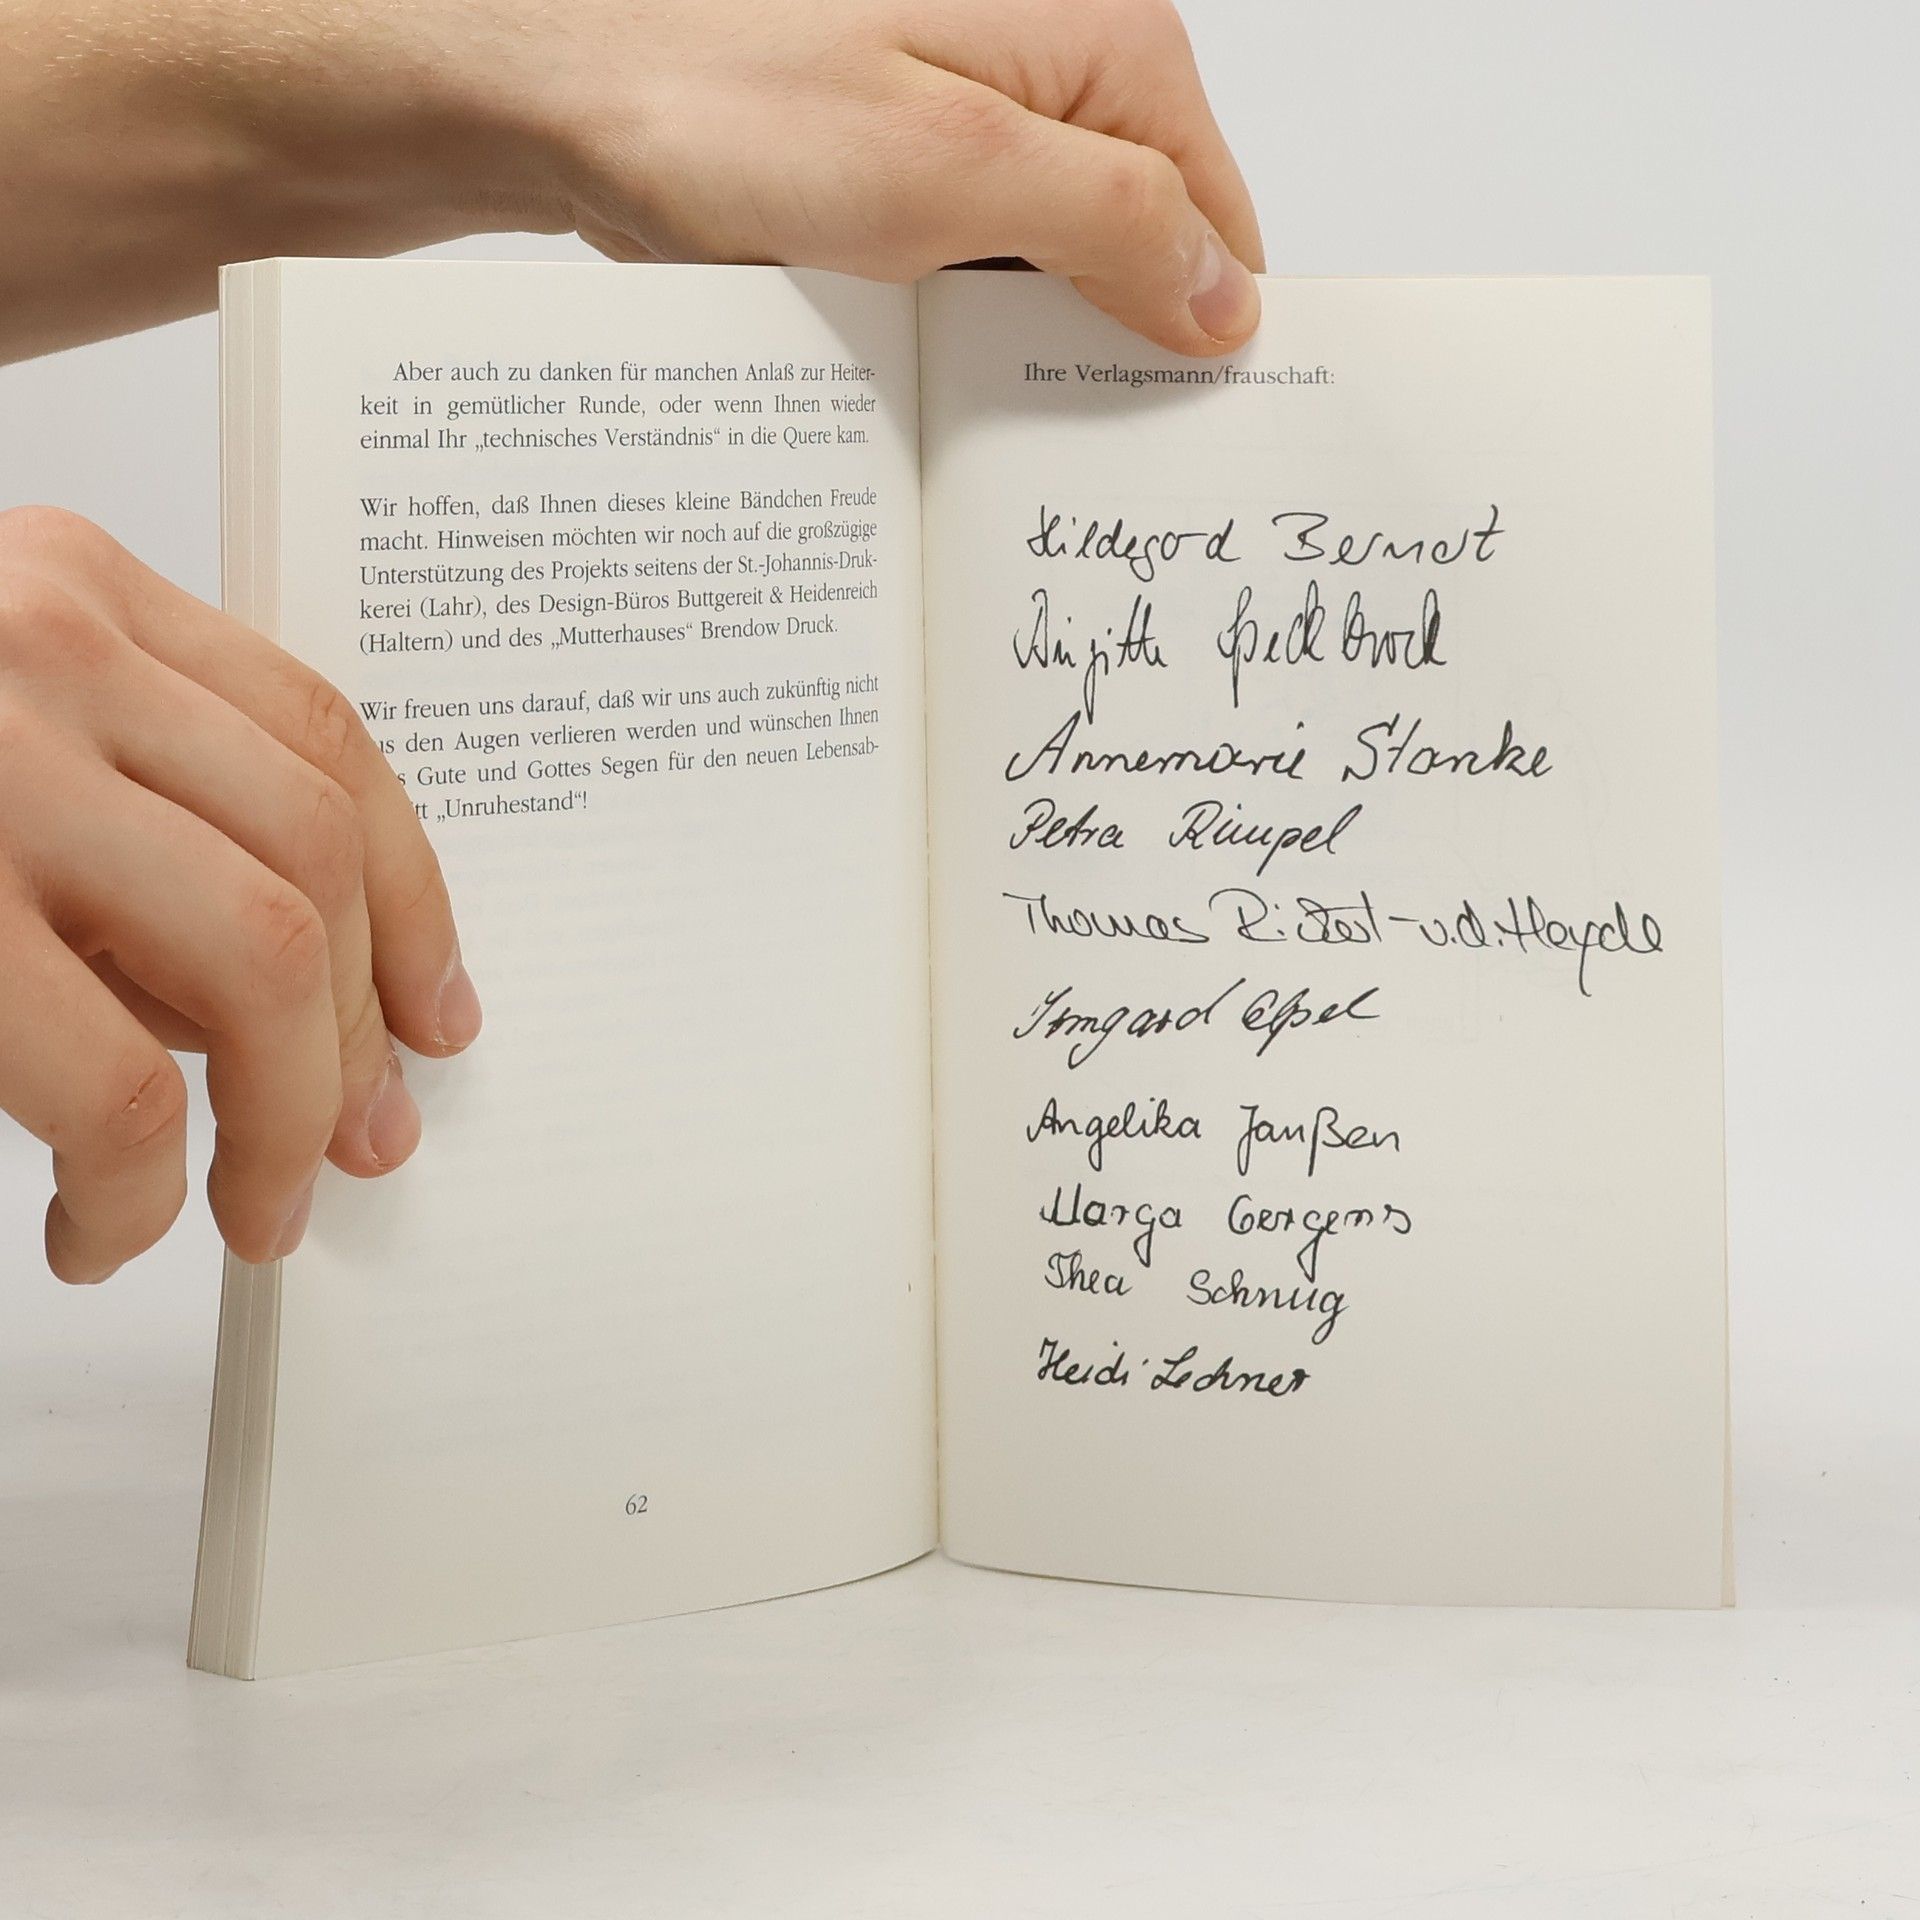 Aber auch zu danken für manchen Anlaß zur Heiter-
keit in gemütlicher Runde, oder wenn Ihnen wieder
einmal Ihr „technisches Verständnis“ in die Quere kam.
Wir hoffen, daß Ihnen dieses kleine Bändchen Freude
macht. Hinweisen möchten wir noch auf die großzügige
Unterstützung des Projekts seitens der St.-Johannis-Druk-
kerei (Lahr), des Design-Büros Buttgereit & Heidenreich
(Haltern) und des „Mutterhauses“ Brendow Druck.
Wir freuen uns darauf, daß wir uns auch zukünftig nicht
den Augen verlieren werden und wünschen Ihnen
Gute und Gottes Segen für den neuen Lebensab-
„Unruhestand“!
62
Ihre Verlagsmann/frauschaft:
Hildegard Berndt
Birgitte Speckbrock
Annemarie Stanke
Petra Rimpel
Thomas v.d.Heyde
Irmgard
Angelika Janßen
Marga Gergens
Thea Schnug
Heidi Lechner